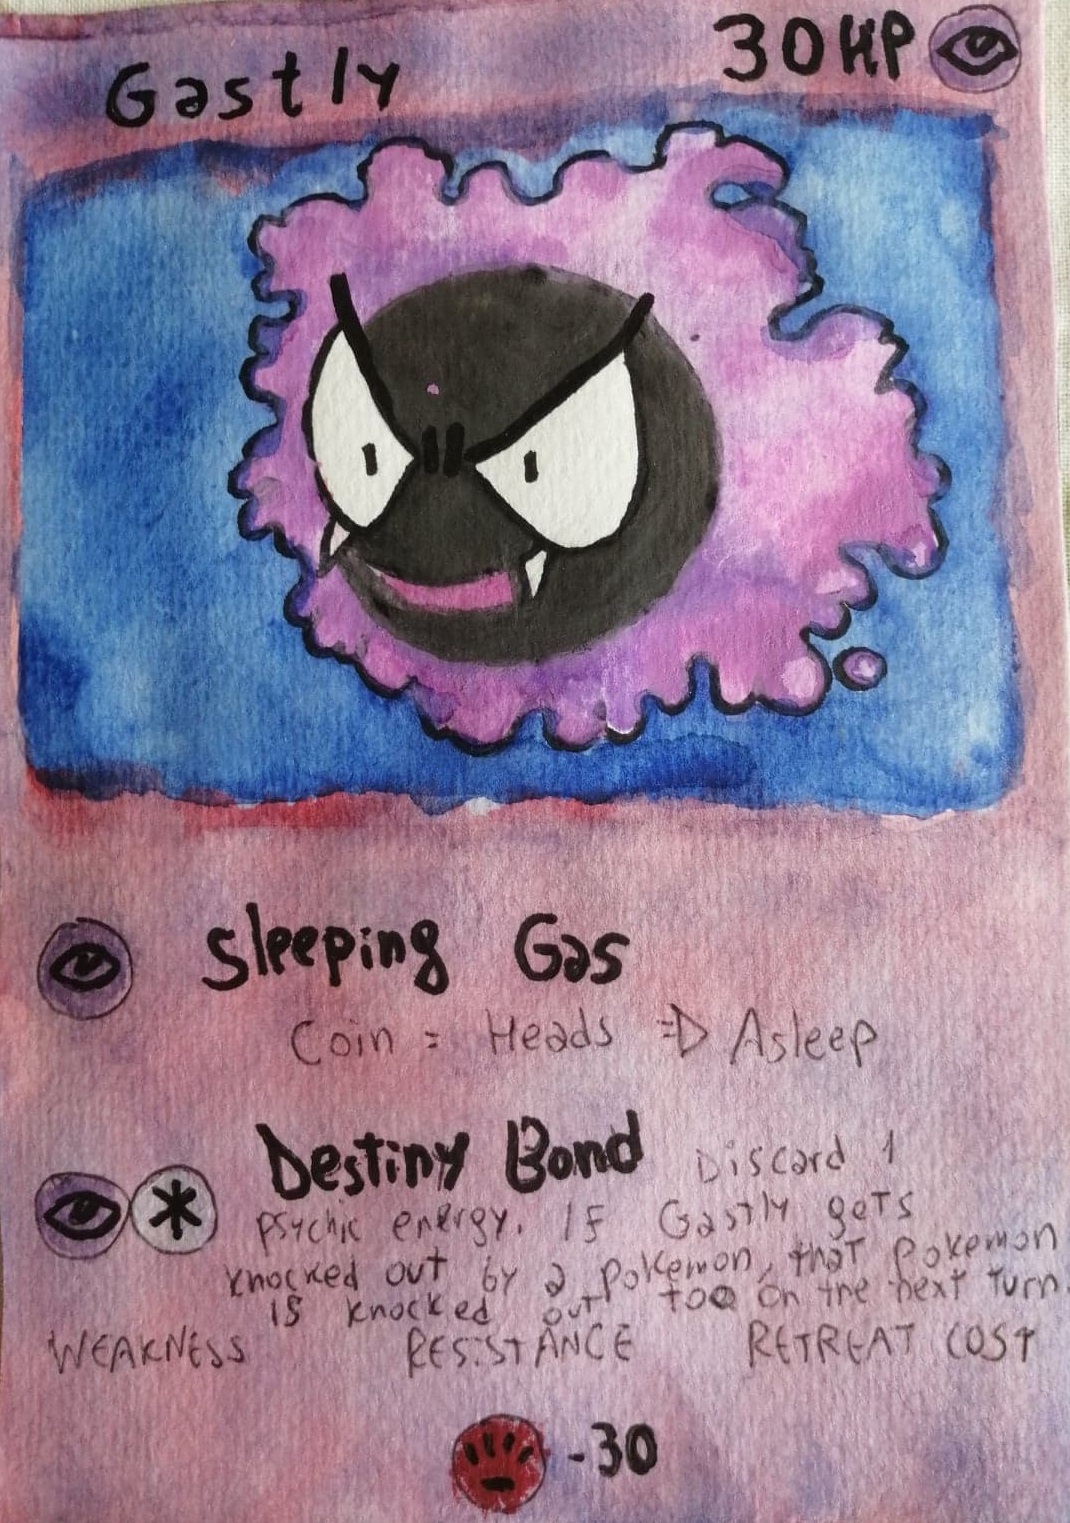 Gastly
30HP
Sleeping Gas
Coin = Heads => Asleep
Destiny Bond Discard 1
psychic energy. If Gastly gets
knocked out by a pokemon, that pokemon
is knocked out too on the next turn.
WEAKNESS RESISTANCE RETREAT COST
-30